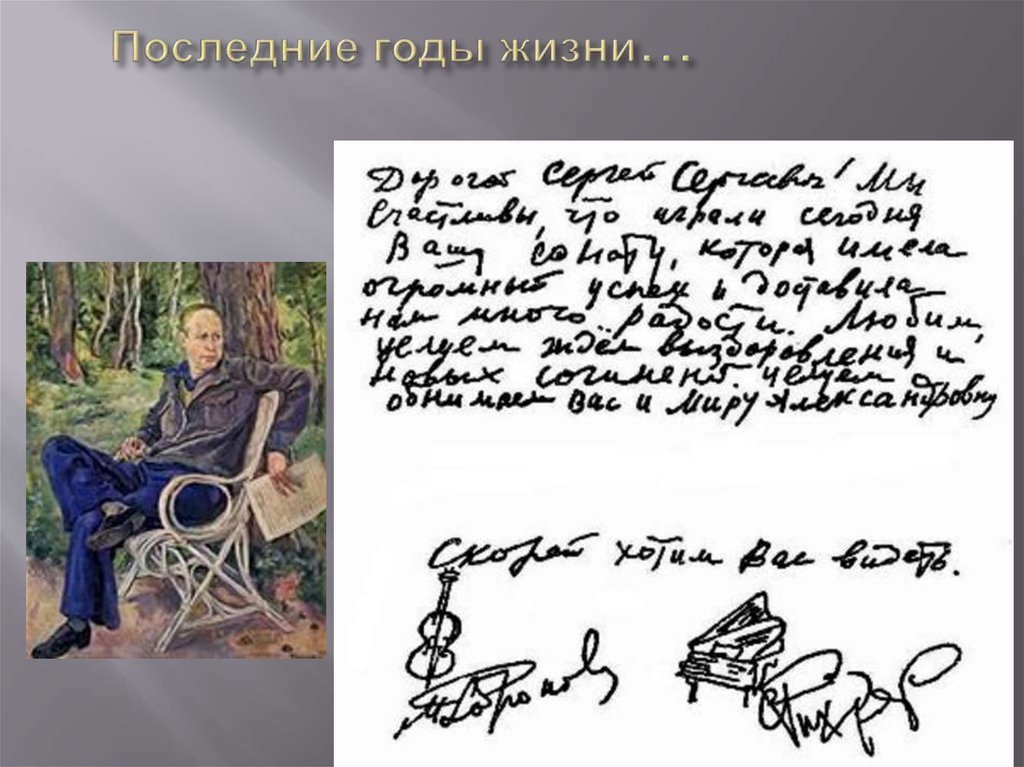 Последние годы жизни...
Дорогой Сергей Сергеевич! Мы
счастливы, что играли сегодня
Вашу сонату, которая имела
огромный успех и доставила
нам много радости. Любим,
целуем ждём выздоровления и
новых сочинений. Целуем
обнимаем Вас и Миру Александровну
Скорей хотим Вас видеть.
С Рихтер